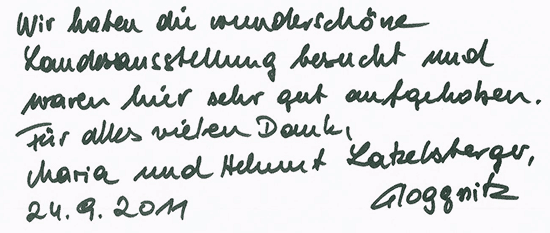 Wir haben die wunderschöne
Landesausstellung besucht und
waren hier sehr gut aufgehoben.
Für alles vielen Dank,
Maria und Helmut Latzelsberger,
Gloggnitz
24.9.2011